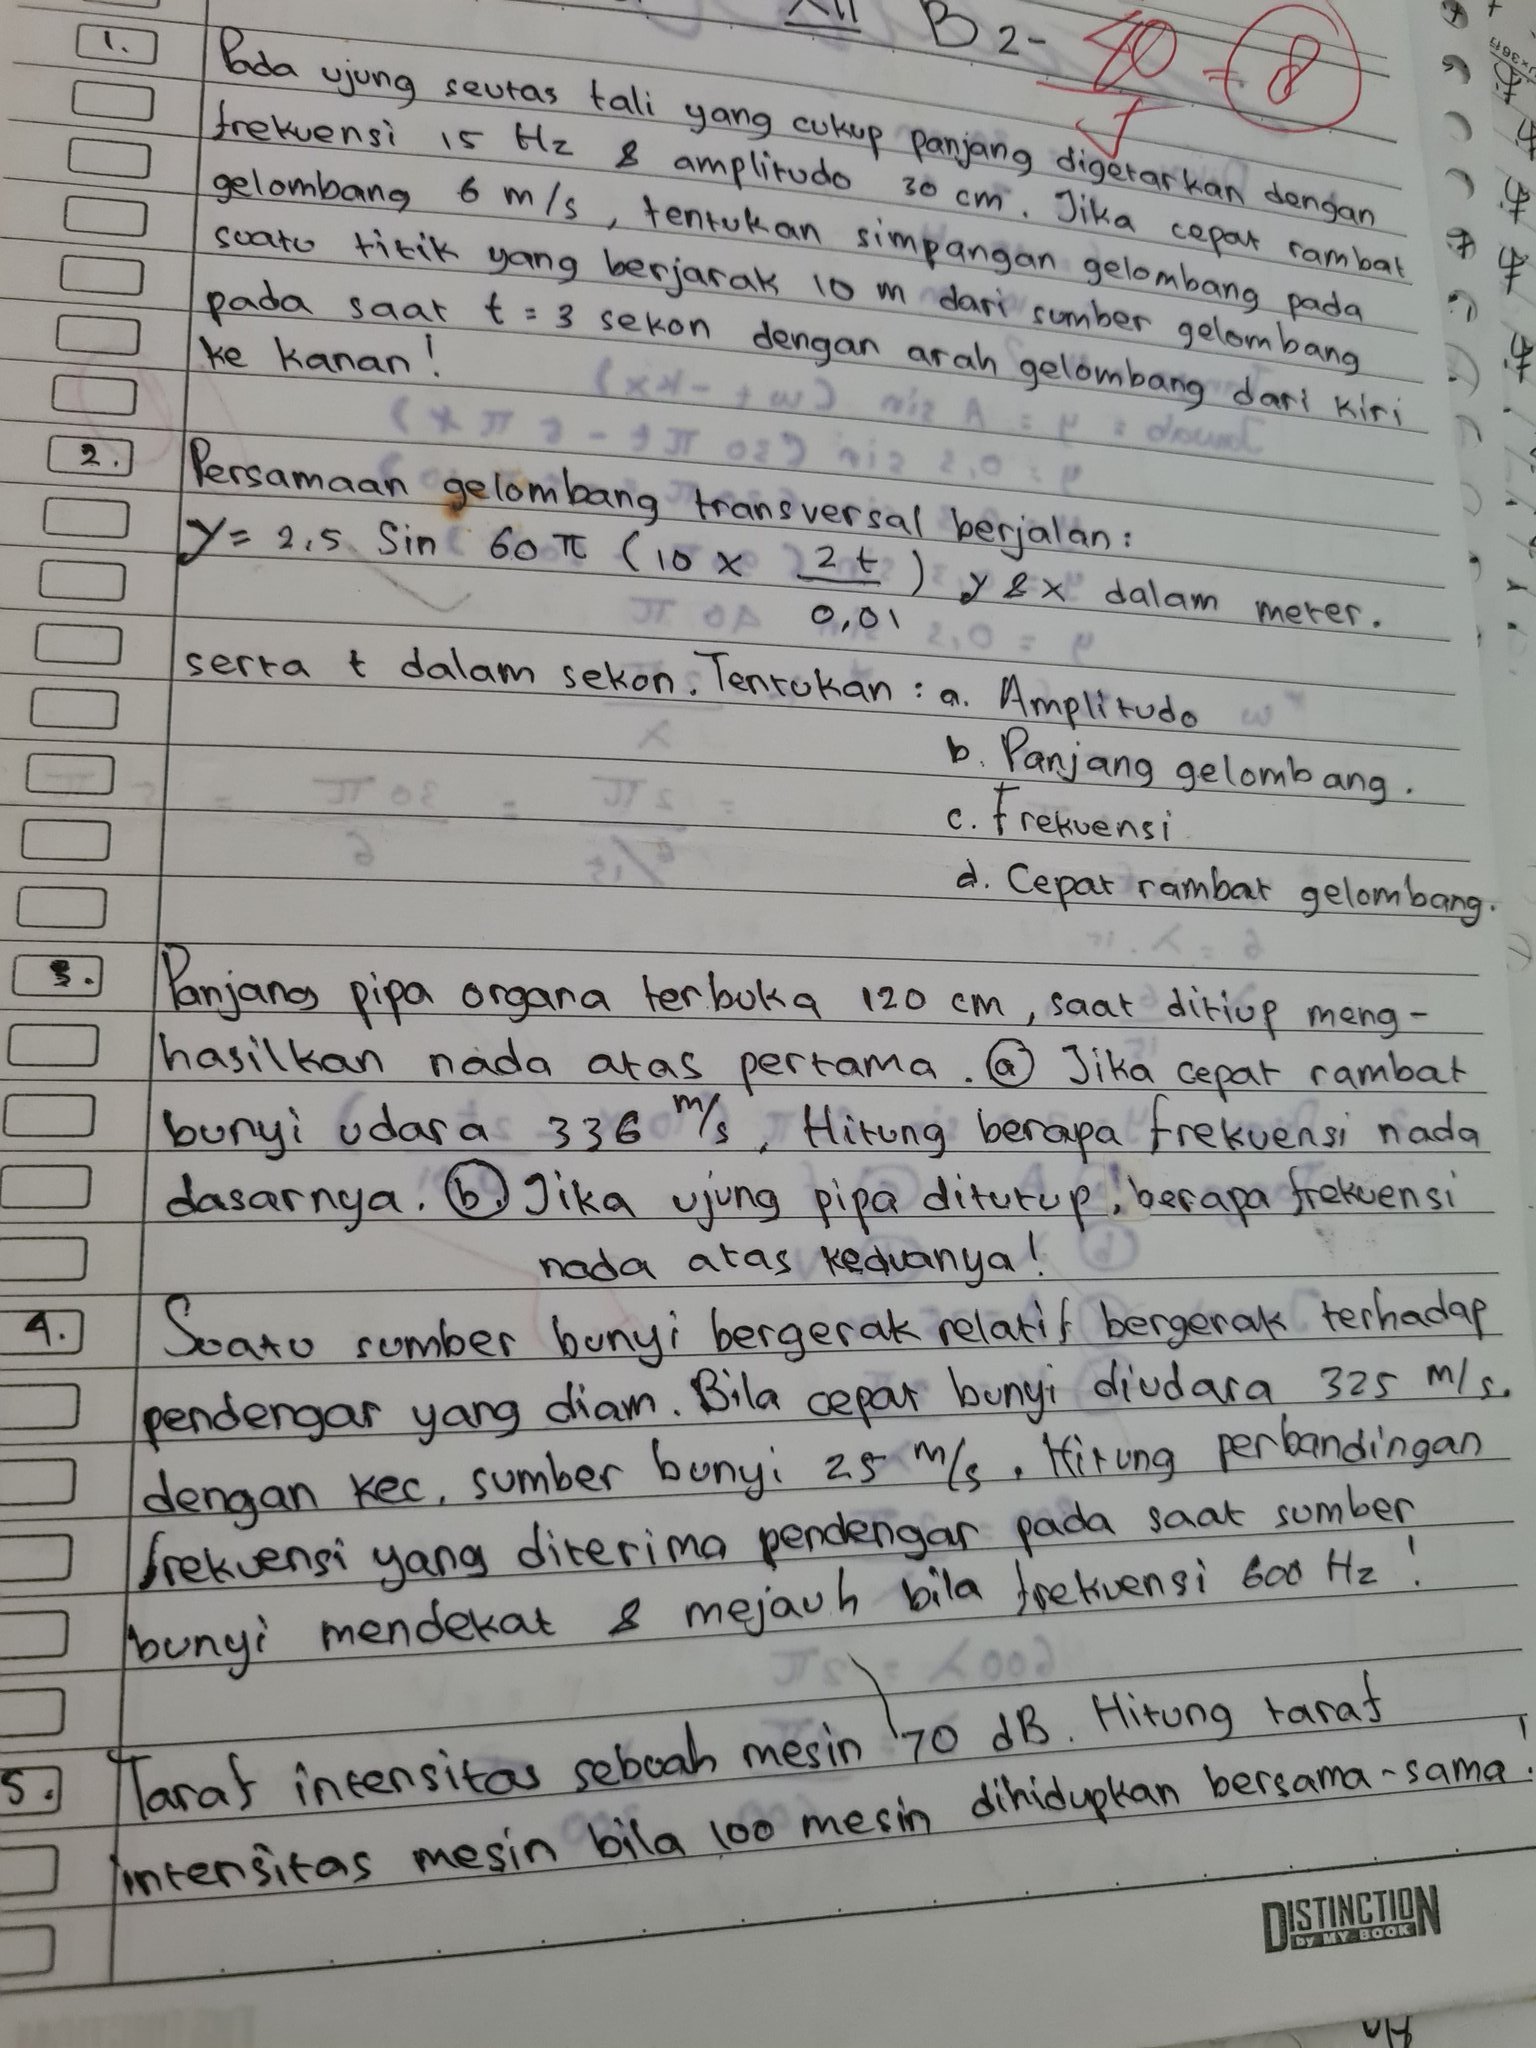 XII B2-
40/5 = 8
1. Pada ujung seutas tali yang cukup panjang digetarkan dengan
frekuensi 15 Hz & amplitudo 30 cm. Jika cepat rambat
gelombang 6 m/s, tentukan simpangan gelombang pada
suatu titik yang berjarak 10 m dari sumber gelombang
pada saat t = 3 sekon dengan arah gelombang dari kiri
ke kanan!
2. Persamaan gelombang transversal berjalan:
y = 2,5 Sin 60 π (10 x 2t/0,01) y & x dalam meter.
serta t dalam sekon. Tentukan : a. Amplitudo
b. Panjang gelombang.
c. Frekuensi
d. Cepat rambat gelombang.
3. Panjang pipa organa terbuka 120 cm, saat ditiup meng-
hasilkan nada atas pertama. (a) Jika cepat rambat
bunyi udara 336 m/s, Hitung berapa frekuensi nada
dasarnya. (b.) Jika ujung pipa ditutup, berapa frekuensi
nada atas keduanya!
4. Suatu sumber bunyi bergerak relatif bergerak terhadap
pendengar yang diam. Bila cepat bunyi diudara 325 m/s.
dengan kec. sumber bunyi 25 m/s. Hitung perbandingan
frekuensi yang diterima pendengar pada saat sumber
bunyi mendekat & mejauh bila frekuensi 600 Hz!
5. Taraf intensitas sebuah mesin 70 dB. Hitung taraf
intensitas mesin bila 100 mesin dihidupkan bersama-sama!
DISTINCTION
by MY BOOK